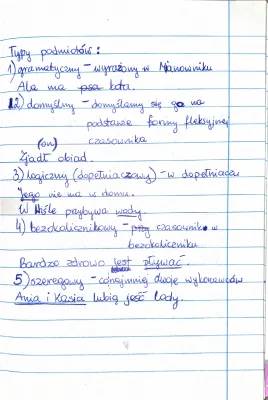 Typy podmiotów:
1) gramatyczny – wyrażony w Mianowniku
Ala ma psa kota.
2) domyślny – domyślamy się go na
podstawie formy fleksyjnej
(on) czasownika
Zjadł obiad.
3) logiczny (dopełniaczowy) – w dopełniaczu
Jego nie ma w domu.
W Wiśle przybywa wody.
4) bezokolicznikowy – czasownik w
bezokoliczniku
Bardzo zdrowo jest pływać.
5) szeregowy – conajmniej dwoje wykonawców
Ania i Kasia lubią jeść lody.